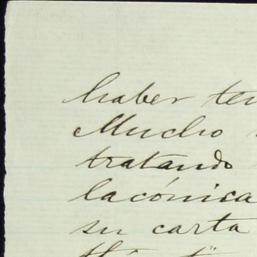 haber
Mucho
tratando
lacónica
su carta